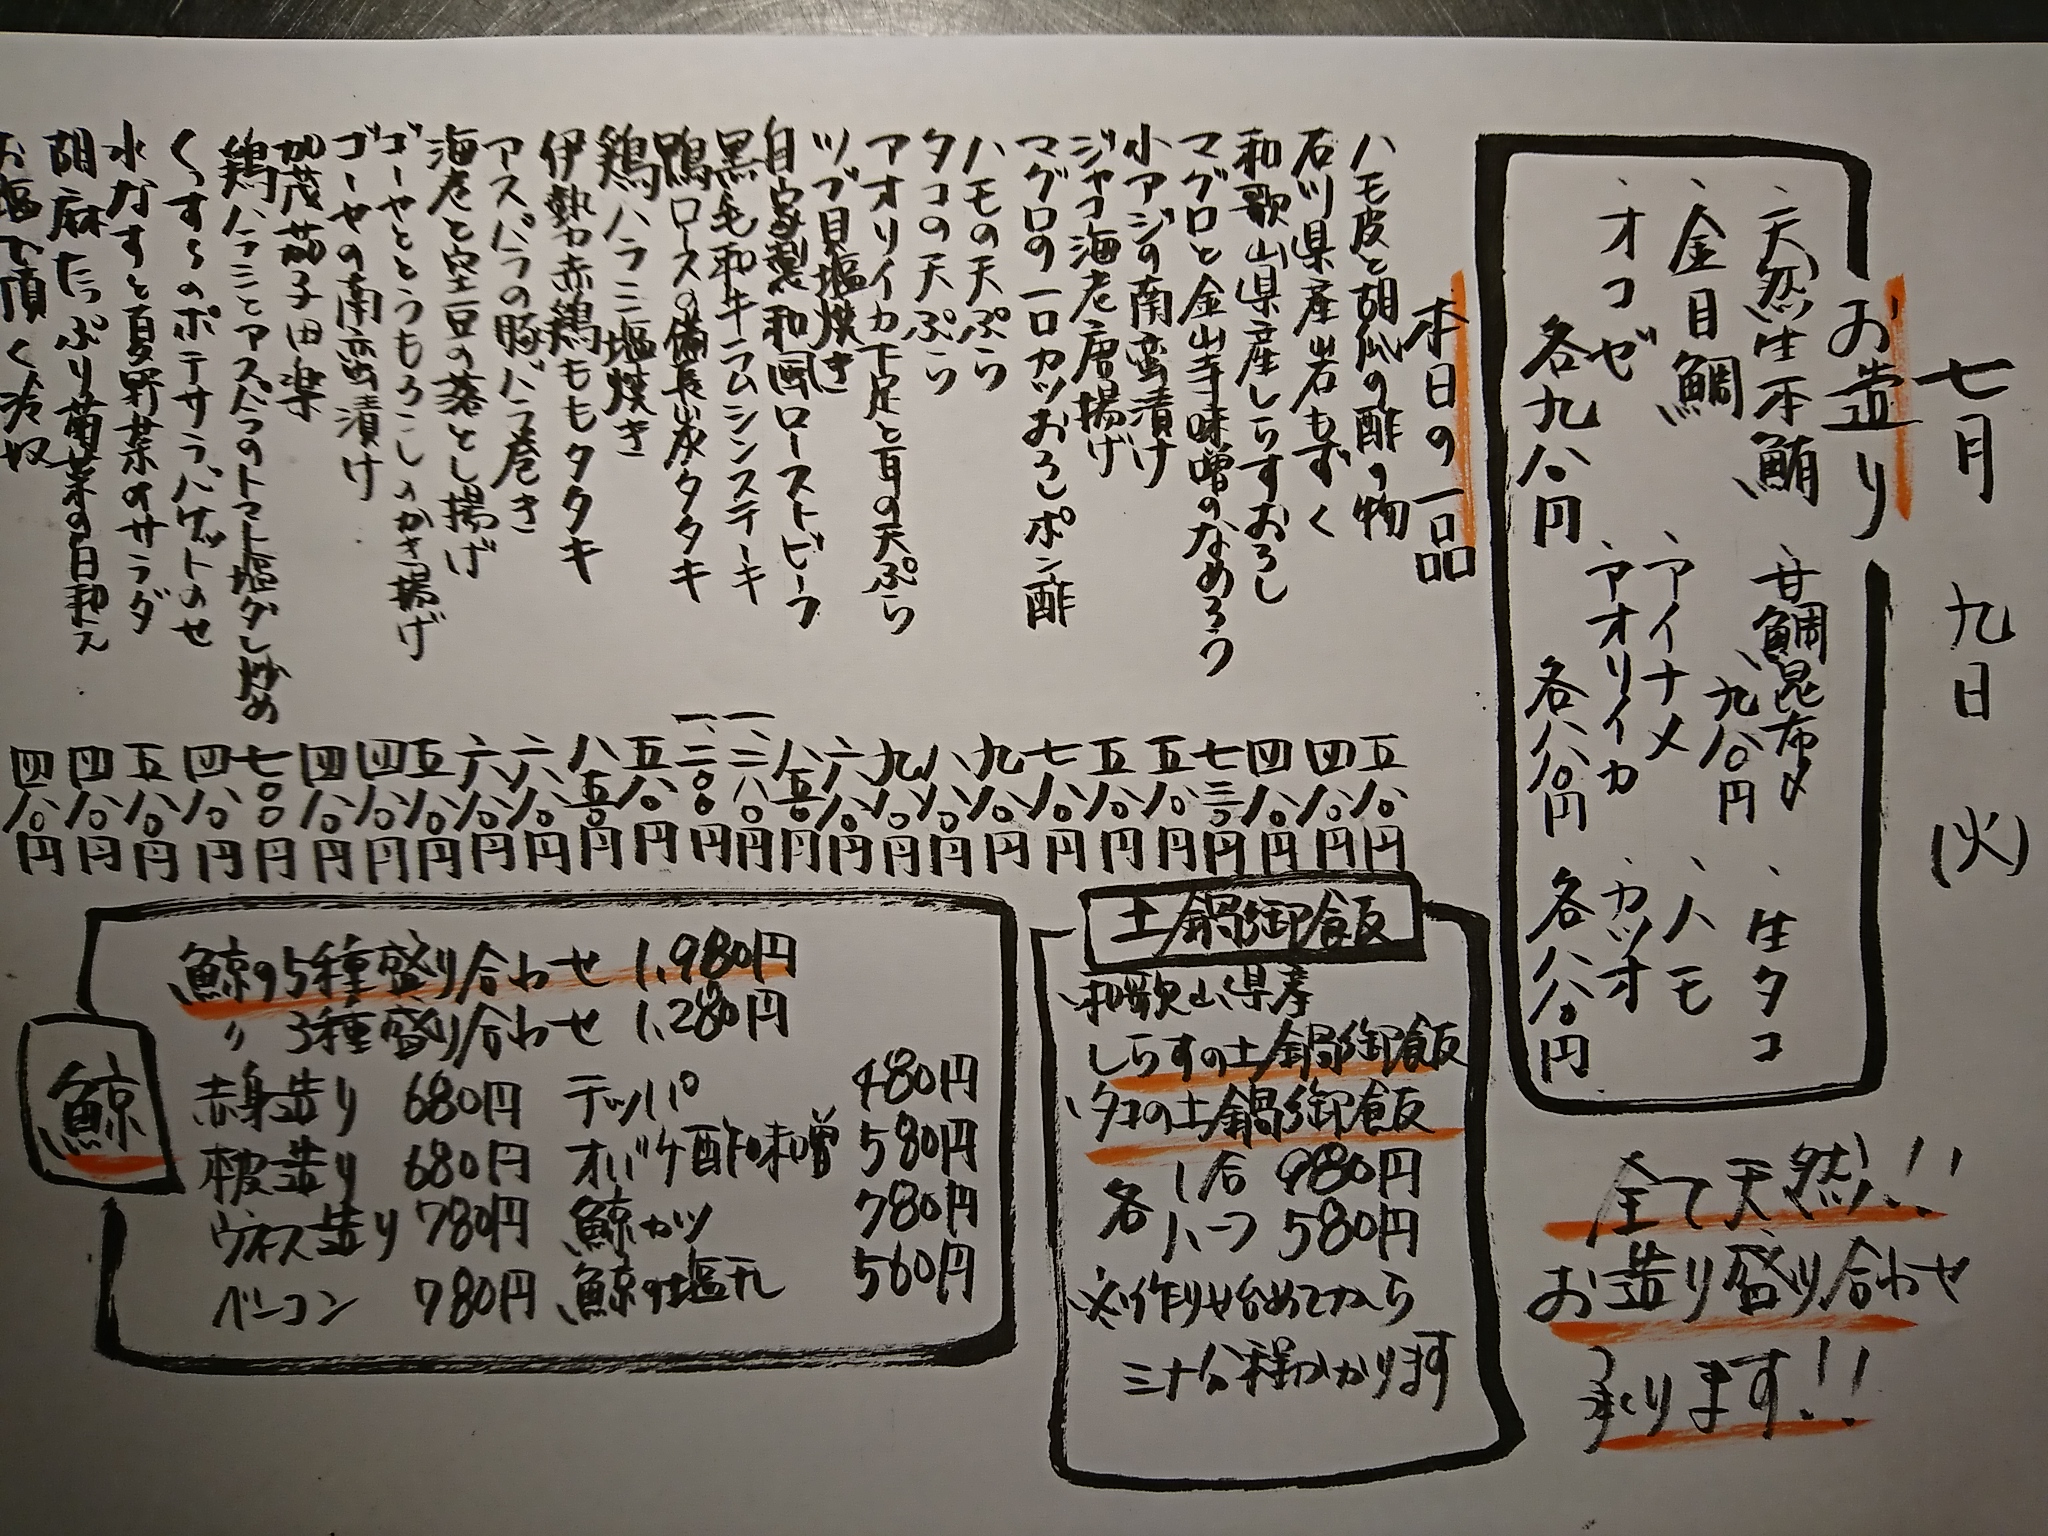 七月 九日 (火)
お造り
、天然生本鮪
、金目鯛
、オコゼ
各九八〇円
、甘鯛昆布〆
九八〇円
、アイナメ
、アオリイカ
各八八〇円
、生タコ
、ハモ
、カツオ
各八八〇円
全て天然!!
お造り盛り合わせ
承ります!!
本日の一品
ハモ皮と胡瓜の酢の物 五八〇円
石川県産岩もずく 四八〇円
和歌山県産しらすおろし 四八〇円
マグロと金山寺味噌のなめろう 七三〇円
小アジの南蛮漬け 五八〇円
ジャコ海老唐揚げ 五八〇円
マグロの一口カツおろしポン酢 七八〇円
ハモの天ぷら 九八〇円
タコの天ぷら 八八〇円
アオリイカ下足と耳の天ぷら 九八〇円
ツブ貝塩焼き 六八〇円
自家製和風ローストビーフ 八五〇円
黒毛和牛ラムシンステーキ 一、二八〇円
鴨ロースの備長炭タタキ 一、二〇〇円
鶏ハラミ塩焼き 五八〇円
伊勢赤鶏ももタタキ 八五〇円
アスパラの豚バラ巻き 六八〇円
海老と空豆の落とし揚げ 六八〇円
ゴーヤととうもろこしのかき揚げ 五八〇円
ゴーヤの南蛮漬け 四八〇円
加茂茄子田楽 四八〇円
鶏ハラミとアスパラのトマト塩ダレ炒め 七〇〇円
くんすりのポテサラバゲットのせ 四八〇円
水なすと夏野菜のサラダ 五八〇円
胡麻たっぷり菊菜の白和え 四八〇円
お塩で頂く冷奴 四八〇円
土鍋御飯
、和歌山県産
しらすの土鍋御飯
、タコの土鍋御飯
各 1合 980円
ハーフ 580円
※作り始めてから
三十分程かかります
鯨
鯨の5種盛り合わせ 1,980円
〃 3種盛り合わせ 1,280円
赤身造り 680円 テッパ 480円
本皮造り 680円 オバケ酢味噌 580円
ウネス造り 780円 鯨カツ 780円
ベーコン 780円 鯨の塩丸 560円